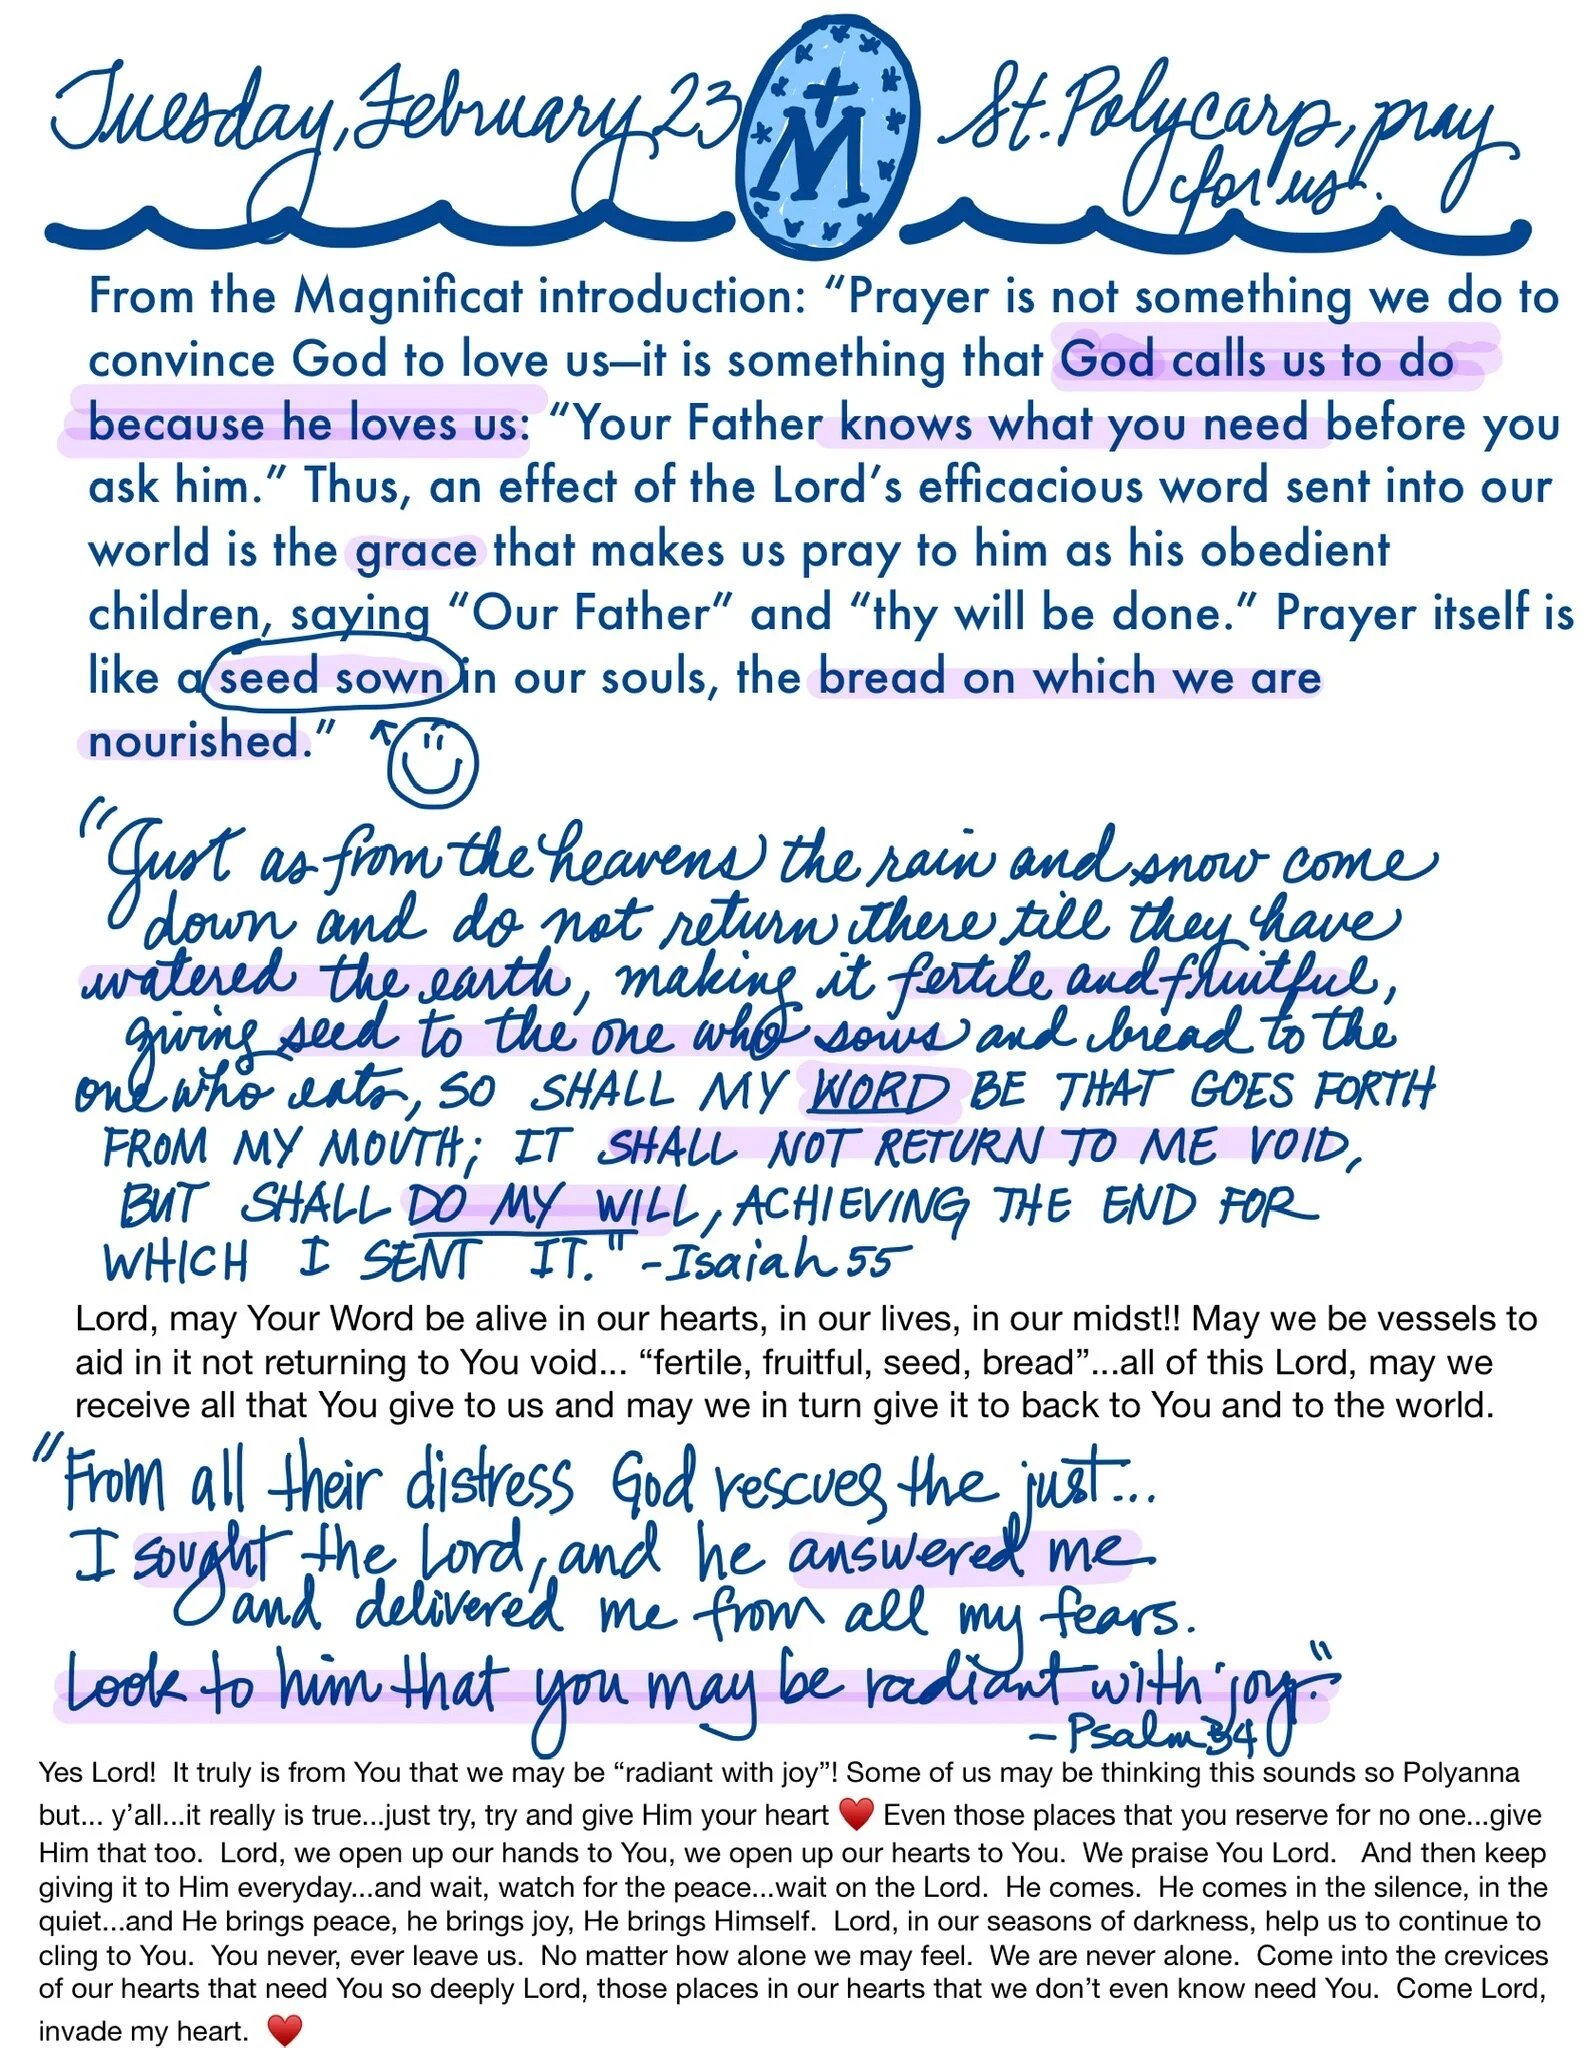 Tuesday, February 23
St. Polycarp, pray
for us.
M
From the Magnificat introduction: “Prayer is not something we do to
convince God to love us—it is something that God calls us to do
because he loves us: “Your Father knows what you need before you
ask him.” Thus, an effect of the Lord’s efficacious word sent into our
world is the grace that makes us pray to him as his obedient
children, saying “Our Father” and “thy will be done.” Prayer itself is
like a seed sown in our souls, the bread on which we are
nourished.”
“Just as from the heavens the rain and snow come
down and do not return there till they have
watered the earth, making it fertile and fruitful,
giving seed to the one who sows and bread to the
one who eats, SO SHALL MY WORD BE THAT GOES FORTH
FROM MY MOUTH; IT SHALL NOT RETURN TO ME VOID,
BUT SHALL DO MY WILL, ACHIEVING THE END FOR
WHICH I SENT IT." -Isaiah 55
Lord, may Your Word be alive in our hearts, in our lives, in our midst!! May we be vessels to
aid in it not returning to You void... “fertile, fruitful, seed, bread”...all of this Lord, may we
receive all that You give to us and may we in turn give it to back to You and to the world.
"From all their distress God rescues the just...
I sought the Lord, and he answered me
and delivered me from all my fears.
Look to him that you may be radiant with joy."
- Psalm 34
Yes Lord!  It truly is from You that we may be “radiant with joy”! Some of us may be thinking this sounds so Polyanna
but... y’all...it really is true...just try, try and give Him your heart ♥️ Even those places that you reserve for no one...give
Him that too.  Lord, we open up our hands to You, we open up our hearts to You.  We praise You Lord.   And then keep
giving it to Him everyday...and wait, watch for the peace...wait on the Lord.  He comes.  He comes in the silence, in the
quiet...and He brings peace, he brings joy, He brings Himself.  Lord, in our seasons of darkness, help us to continue to
cling to You.  You never, ever leave us.  No matter how alone we may feel.  We are never alone.  Come into the crevices
of our hearts that need You so deeply Lord, those places in our hearts that we don’t even know need You.  Come Lord,
invade my heart.  ♥️